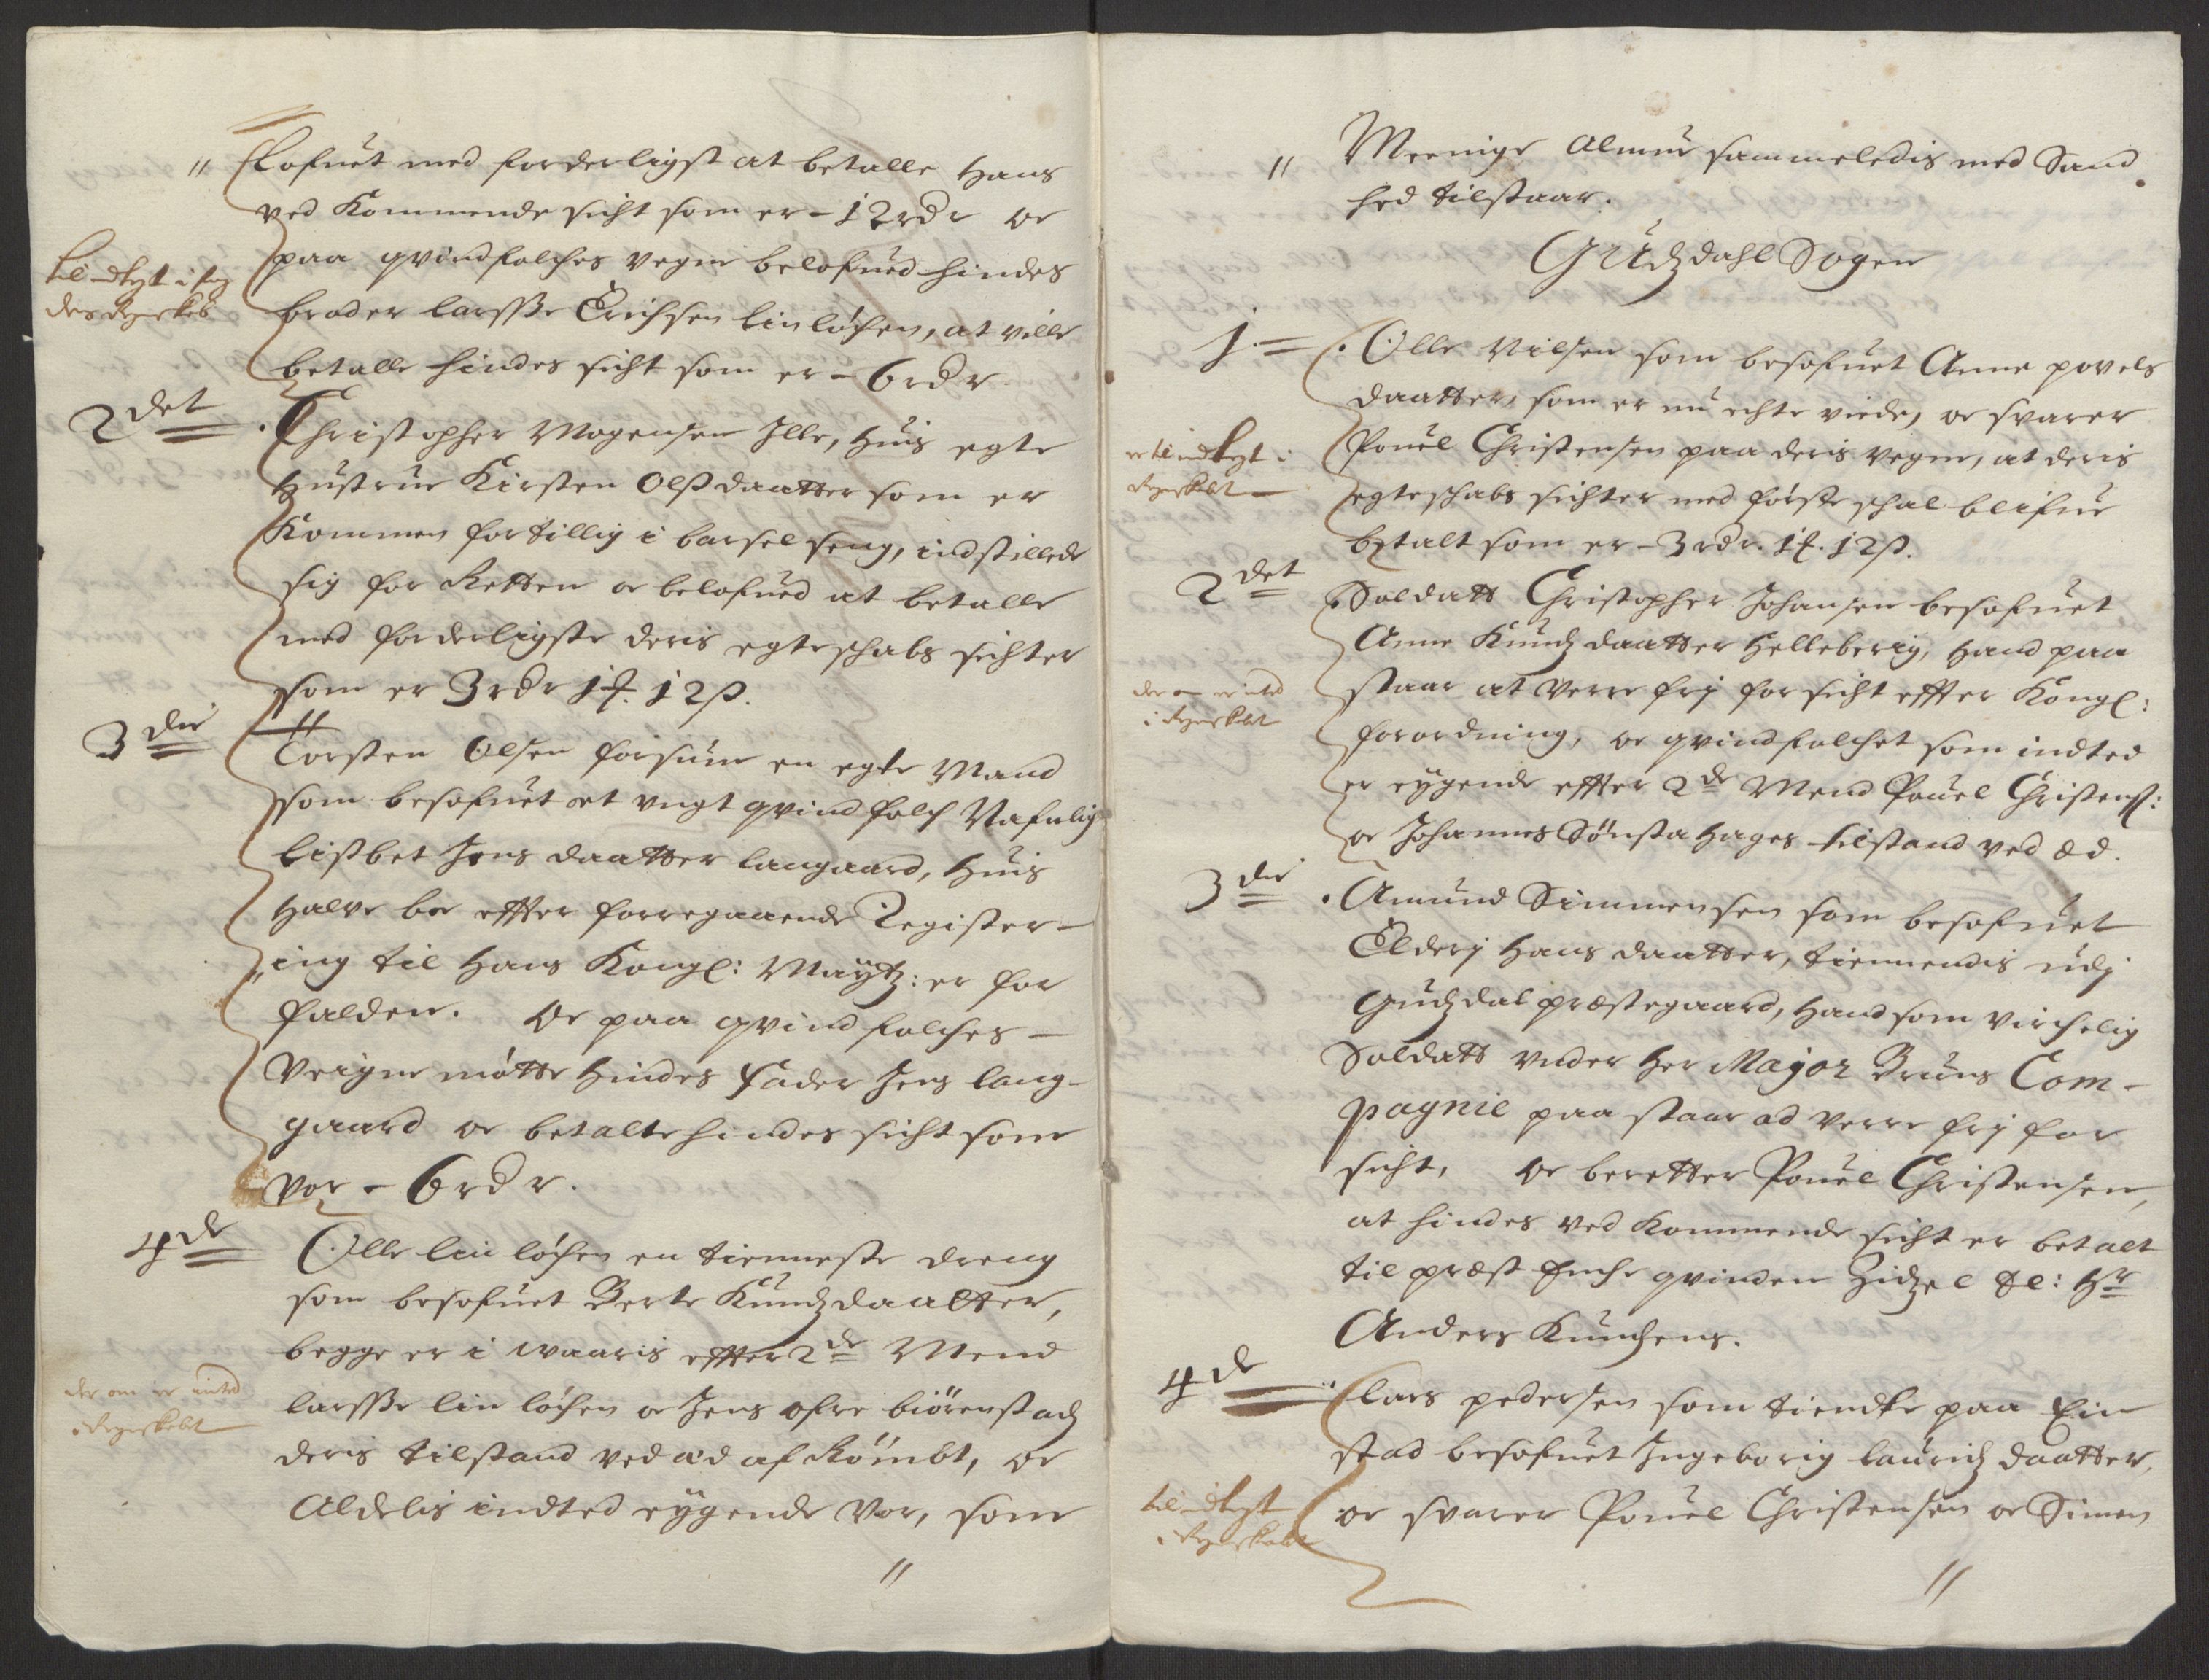 " Lofuet med forderligst at betalle Hans
ved Kommende sicht som er - 12 rdr oc
paa qvindfolches vegne belofued hindes
broder larsse Erichsen Linløchen, at ville
betalle hindes sicht som er - 6 rdr
til indtegt i
des Regnskab
2det Christopher Mogensen Ille, Huis egte
Hustrue Kirsten Olsdaatter som er
Kommen for tillig i barsel seng, indstillede
sig for Retten oc belofued at betalle
med forderligste deris egteschabs sichter
som er 3 rdr 1 ort 12 s.
3die Torsten Olsen Forsum en egte Mand
som besofuet et ungt qvindfolch Nafnlig
Lisbet Jens daatter langaard, Huis
Halve boe effter forregaaende Register-
ing til Hans Kongl: Maytz: er for
falden. Oc paa qvindfolches -
Veigne møtte Hindes Fader Jens lang-
gaard oc betalte hindes sicht som
vor - 6 rdr.
4de Olle Linløchen en tienneste dreng
som besofuet Berte Knudz daatter,
begge er i waaris effter 2de Mend
larsse Linløchen oc Jens ofre biørenstad
deris tilstand ved æd af Rømbt, oc
Aldelis indted eygende vor, som
der om er inted
i Regnskabet
"
" Meenige Almue sammeledis med Sand
hed tilstaar.
Gudzdahl Sogen
1. Olle Nilsen som besofuet Anne povels
daatter, som er nu echte viede, oc svarer
Pouel Christensen paa deris vegne, at deris
egteschabs sichter med første schal blifue
betalt som er - 3 rdr. 1 ort. 12 s.
er til indtegt i
Regnskabet
2det Soldatt Christopher Johansen besofuet
Anne Knudz daatter Helleberig, Hand paa
staar at verre frj for sicht effter Kongl:
forordning, oc qvindfolchet som indted
er eygende effter 2de Mend Pouel Christens:
oc Johannes Sønsta Hages tilstand ved æd.
der om er inted
i Regnskabet
3die Amund Simmensen som besofuet
Elderj Hans daatter, tiennendis udj
Gudzdal præstegaard, Hand som virchelig
Soldatt under Her Major Bruns Com-
pagnie paa staar ad verre frj for
sicht, oc beretter Pouel Christensen,
at hindes ved Kommende sicht er betalt
til præst Enche qvinden Zidzel Sl: Hr
Anders Knudzens.
4de Lars pedersen som tiendte paa Ein
stad besofuet Ingeborig lauridz daatter,
oc svarer Pouel Christensen oc Simen
til indtegt
i Regnskabet
"